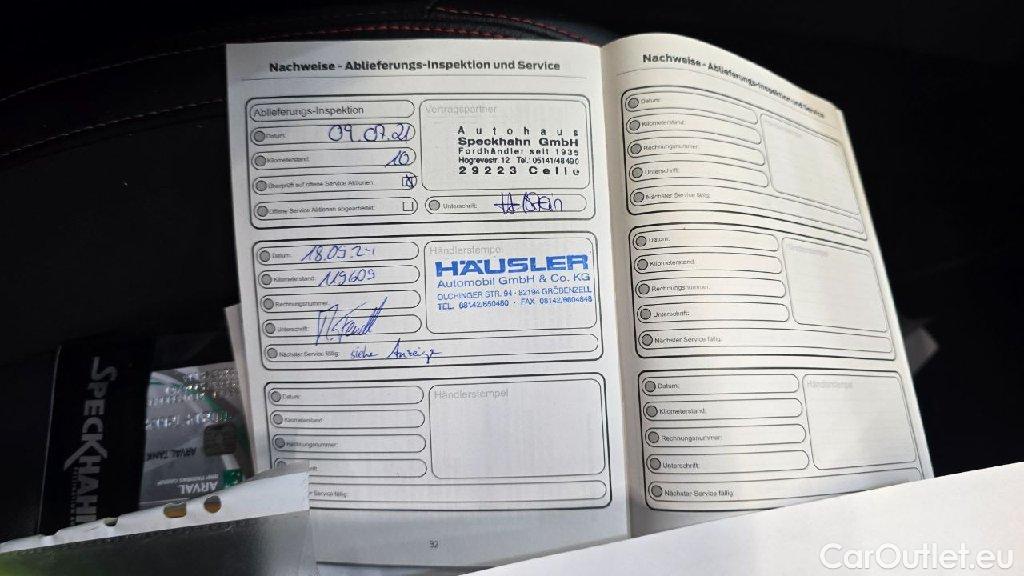 Nachweise - Ablieferungs-Inspektion und Service
Ablieferungs-Inspektion
Datum: 09.07.21
Kilometerstand: 10
Überprüft auf offene Service Aktionen:
Offene Service Aktionen abgearbeitet:
Vertragspartner
Autohaus
Speckhahn GmbH
Fordhändler seit 1935
Hogrevestr. 12 Tel.: 05141/48490
29223 Celle
Unterschrift:
Datum: 18.09.24
Kilometerstand: 119609
Rechnungsnummer:
Unterschrift:
Nächster Service fällig: siehe Anzeige
Händlerstempel
HÄUSLER
Automobil GmbH & Co. KG
OLCHINGER STR. 94 - 82194 GRÖBENZELL
TEL. 08142/660460 · FAX
Datum:
Kilometerstand:
Rechnungsnummer:
Service fällig:
Händlerstempel
32
Nachweise - Ablieferungs-Inspektion und Service
Datum:
Kilometerstand:
Rechnungsnummer:
Unterschrift:
Nächster Service fällig:
Datum:
Kilometerstand:
Rechnungsnummer:
Unterschrift:
Nächster Service fällig:
Datum:
Kilometerstand:
Rechnungsnummer:
Unterschrift:
Nächster Service fällig:
Händlerstempel
SPECKHAHN
ARVAL TANK
ARVAL
CarOutlet.eu